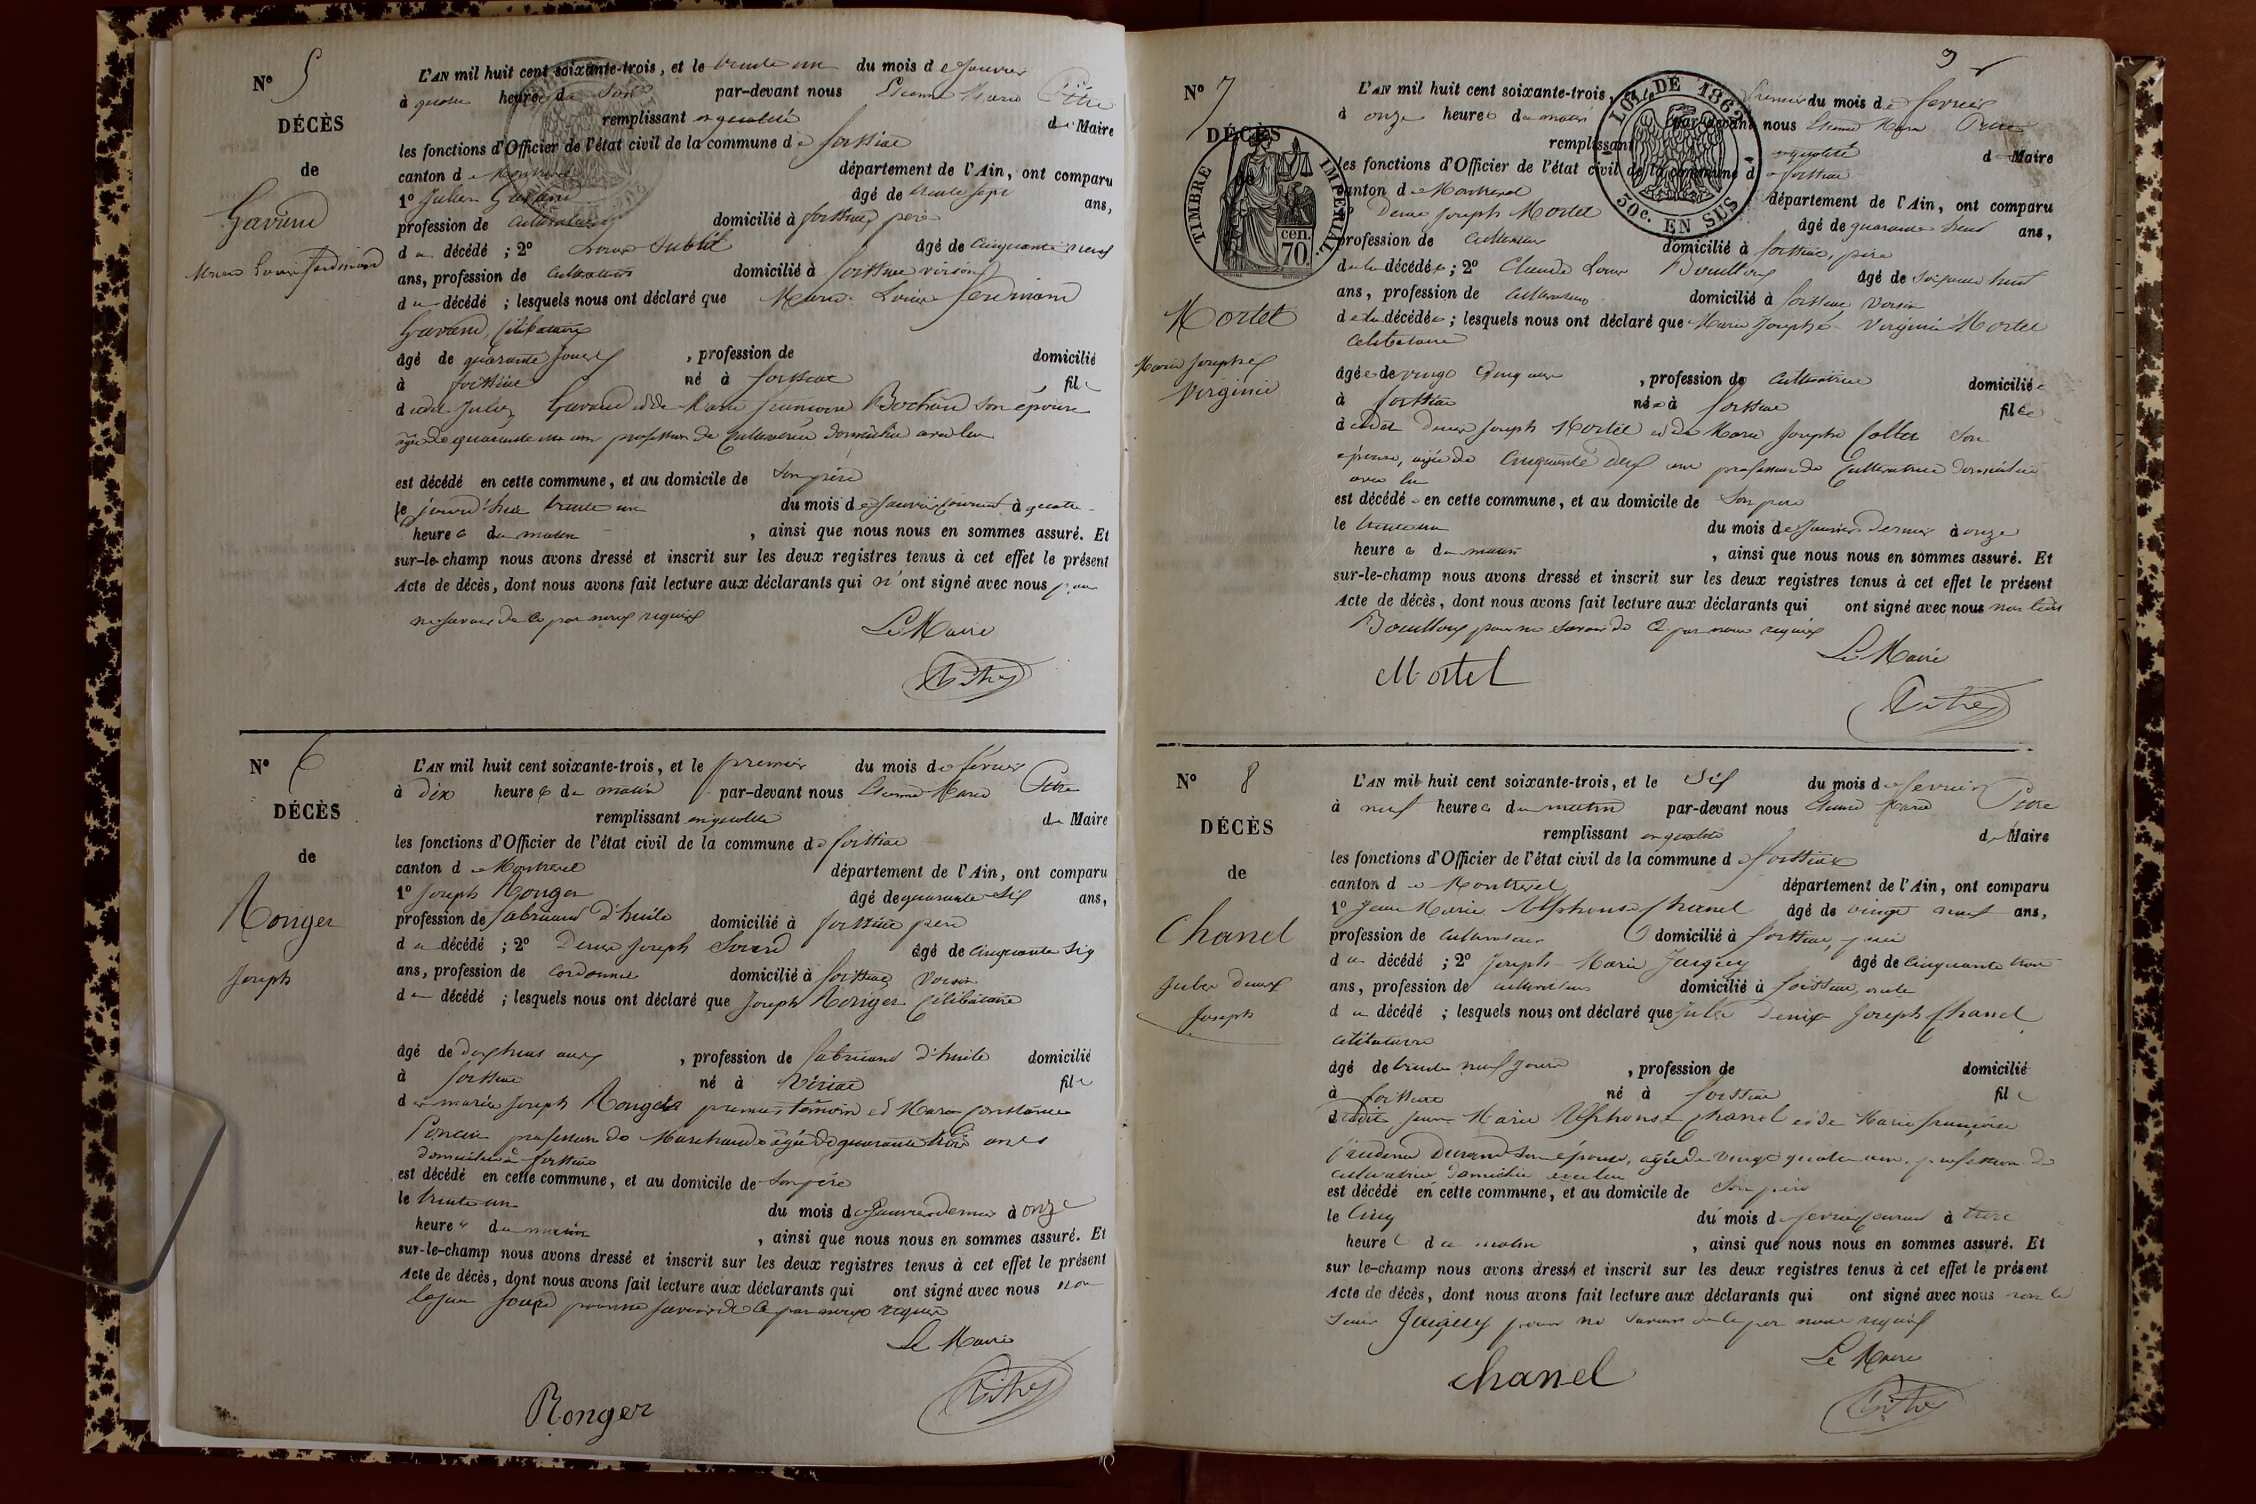 N° 5
DÉCÈS
de
Gavand
Marie Louis Ferdinand
L'AN mil huit cent soixante-trois, et le trente un du mois de Janvier
à quatre heures du soir par-devant nous Etienne Marie Pitre
remplissant en qualité de Maire
les fonctions d'Officier de l'état civil de la commune de foissiat
canton de Montrevel département de l'Ain, ont comparu
1° Julien Gavand âgé de trente sept ans,
profession de cultivateur domicilié à foissiat, père
du décédé ; 2° âgé de cinquante neuf
ans, profession de cultivateur domicilié à foissiat voisin
du décédé ; lesquels nous ont déclaré que Marie Louis ferdinand
Gavand, célibataire
âgé de quarante jours , profession de domicilié
à foissiat né à foissiat fils
dudit Julien Gavand et de Marie françoise Bochard son épouse
âgée de quarante un ans profession de cultivatrice domiciliée avec lui
est décédé en cette commune, et au domicile de son père
le jourd'hui trente un du mois de Janvier courant à quatre
heures du matin , ainsi que nous nous en sommes assuré. Et
sur-le-champ nous avons dressé et inscrit sur les deux registres tenus à cet effet le présent
Acte de décès, dont nous avons fait lecture aux déclarants qui n'ont signé avec nous pour
ne savoir de ce par nous requis
Le Maire
Pitre
N° 6
DÉCÈS
de
Ronger
Joseph
L'AN mil huit cent soixante-trois, et le premier du mois de février
à dix heures du matin par-devant nous Etienne Marie Pitre
remplissant en qualité de Maire
les fonctions d'Officier de l'état civil de la commune de foissiat
canton de Montrevel département de l'Ain, ont comparu
1° Joseph Ronger âgé de quarante six ans,
profession de fabricant d'huile domicilié à foissiat père
du décédé ; 2° Denis Joseph âgé de cinquante six
ans, profession de cordonnier domicilié à foissiat, voisin
du décédé ; lesquels nous ont déclaré que Joseph Ronger célibataire
âgé de dix huit ans , profession de fabricant d'huile domicilié
à foissiat né à Viriat fils
de mariés Joseph Ronger premier témoin et Marie Constance
Poncin profession de Marchande âgée de quarante trois ans
domiciliée à foissiat
est décédé en cette commune, et au domicile de son père
le trente un du mois de Janvier dernier à onze
heures du matin , ainsi que nous nous en sommes assuré. Et
sur-le-champ nous avons dressé et inscrit sur les deux registres tenus à cet effet le présent
Acte de décès, dont nous avons fait lecture aux déclarants qui ont signé avec nous non
pour ne savoir de ce par nous requis
Le Maire
Ronger
Pitre
3
N° 7
DÉCÈS
TIMBRE IMPÉRIAL.
70 cen.
LOI DE 1862
50c. EN SUS
Mortel
Marie Josephe
Virginie
L'AN mil huit cent soixante-trois, premier du mois de février
à onze heures du matin par devant nous Etienne Marie Pitre
remplissant en qualité de Maire
les fonctions d'Officier de l'état civil de la commune de foissiat
canton de Montrevel département de l'Ain, ont comparu
1° Denis Joseph Mortel âgé de quarante ans,
profession de cultivateur domicilié à foissiat, père
de la décédée ; 2° Claude Louis Bouilloux âgé de soixante huit
ans, profession de cultivateur domicilié à foissiat voisin
de la décédée ; lesquels nous ont déclaré que Marie Josephe Virginie Mortel
célibataire
âgée de vingt cinq ans , profession de cultivatrice domiciliée
à foissiat née à foissiat fille
dudit Denis Joseph Mortel et de Marie Josephe son
épouse, âgée de cinquante deux ans profession de cultivatrice domiciliée
avec lui
est décédée en cette commune, et au domicile de son père
le trente un du mois de Janvier dernier à onze
heures du matin , ainsi que nous nous en sommes assuré. Et
sur-le-champ nous avons dressé et inscrit sur les deux registres tenus à cet effet le présent
Acte de décès, dont nous avons fait lecture aux déclarants qui ont signé avec nous non ledit
Bouilloux pour ne savoir de ce par nous requis
Le Maire
Mortel
Pitre
N° 8
DÉCÈS
de
Chanel
Jules Denis
Joseph
L'AN mil huit cent soixante-trois, et le six du mois de février
à neuf heures du matin par-devant nous Etienne Marie Pitre
remplissant en qualité de Maire
les fonctions d'Officier de l'état civil de la commune de foissiat
canton de Montrevel département de l'Ain, ont comparu
1° Jean Marie Alphonse Chanel âgé de vingt neuf ans,
profession de cultivateur domicilié à foissiat, père
du décédé ; 2° Joseph Marie Juiguy âgé de cinquante trois
ans, profession de cultivateur domicilié à foissiat, oncle
du décédé ; lesquels nous ont déclaré que Jules Denis Joseph Chanel
célibataire
âgé de trente neuf jours , profession de domicilié
à foissiat né à foissiat fils
dudit Jean Marie Alphonse Chanel et de Marie françoise
Durand son épouse, âgée de vingt quatre ans profession de
cultivatrice domiciliée avec lui
est décédé en cette commune, et au domicile de son père
le cinq du mois de février courant à trois
heures du matin , ainsi que nous nous en sommes assuré. Et
sur le-champ nous avons dressé et inscrit sur les deux registres tenus à cet effet le présent
Acte de décès, dont nous avons fait lecture aux déclarants qui ont signé avec nous non le
sieur Juiguy pour ne savoir de ce par nous requis
Le Maire
chanel
Pitre